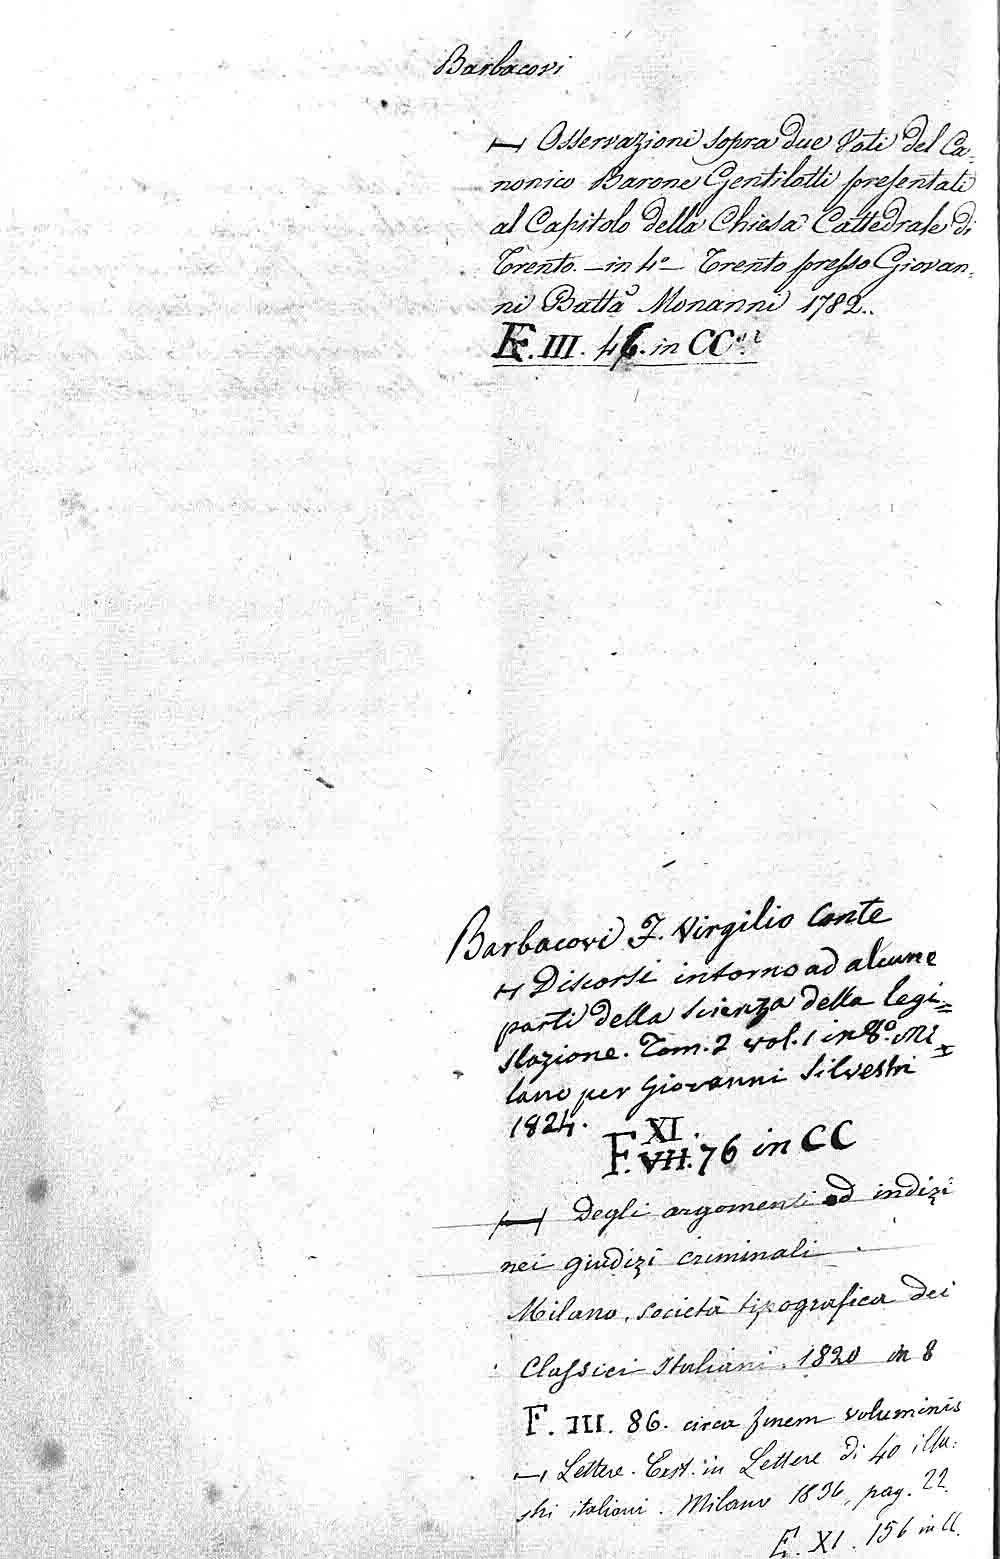 Barbacovi
⊢⊣ Osservazioni sopra due Voti del Ca=
nonico Barone Gentilotti presentati
al Capitolo della Chiesa Cattedrale di
Trento. – in 4.° – Trento presso Giovan=
ni Batta Monauni 1782..
F. III. 46. in CC
Barbacovi F. Virgilio Conte
⊢⊣ Discorsi intorno ad alcune
parti della scienza della legi=
slazione. Tom. 2 vol. 1 in 8.° Mi=
lano per Giovanni Silvestri
1824.
XI.
F. VII. 76 in CC
⊢⊣ Degli argomenti ed indizi
nei giudizi criminali.
Milano, società tipografica dei
Classici Italiani. 1820 in 8
F. III. 86. circa finem voluminis
⊢⊣ Lettere. Exst. in Lettere di 40 illu:
stri italiani. Milano 1836, pag. 22.
F. XI. 156 in CC.